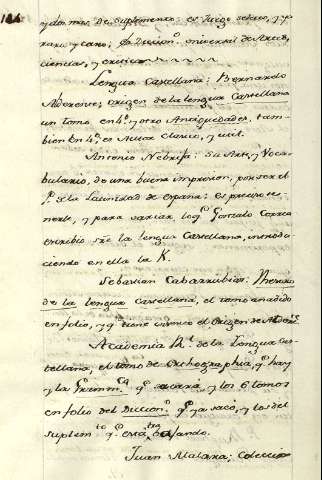 y dos mas De Suplemento: es Juego selecto, y
raro, y caro; Diccion.º universal de Artes,
ciencias, y
Lengua Castellana: Bernardo
Alderete, origen de la lengua Castellana
un tomo en 4.º y otro Antiguedades, tam-
bien en 4.º es Autor clasico, y util.
Antonio Nebrija: Su Arte, y Voca-
bulario, de una buena impresion, por ser el
P.º de la Latinidad de españa: es preciso te-
nerle, y para variar lo q.º Gonzalo Correa
escrivio sre la lengua Castellana, introdu
ciendo en ella la K.
Sebastian Cabarrubias: Thesoro
de la lengua Castellana, el tomo añadido
en folio, y q.º tiene el Origen de
Academia Rl. de la Lengua Cas-
tellana, el tomo de Orthographia, q.º hay
y la Gramm.ca q.º sacará, y los 6 tomos
en folio del Diccion.º q.º ya sacó, y los del
suplem.to q.º está trabajando.
Juan Malara; Coleccion